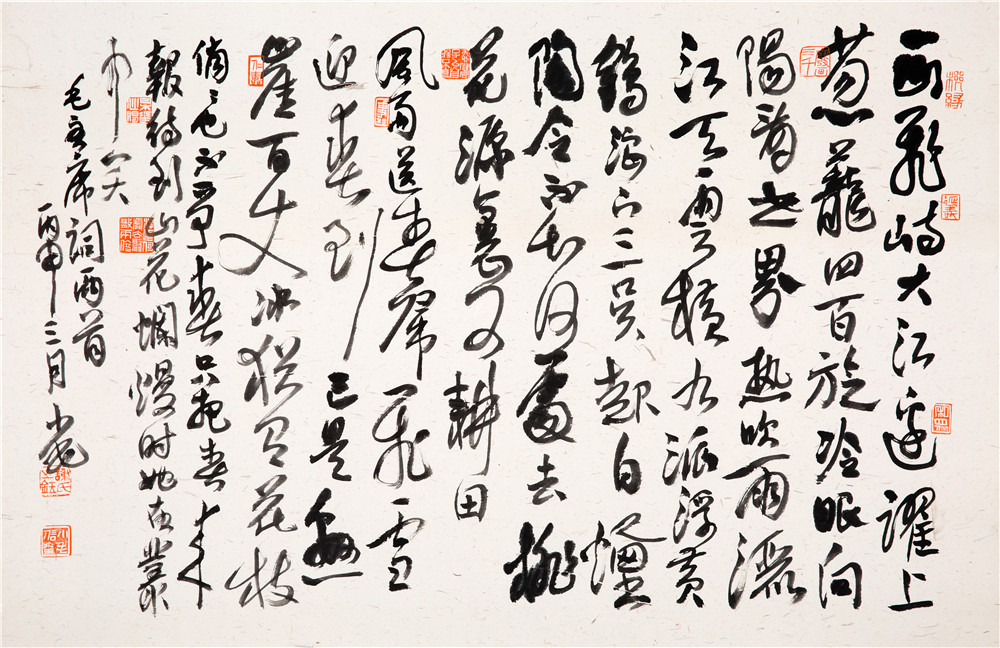 一山飛峙大江邊躍上
葱蘢四百旋冷眼向
陽看世界熱吹雨灑
江天雲橫九派浮黃
鶴浪下三吳起白煙
陶令不知何處去桃
花源裏可耕田
風雨送春歸飛雪
迎春到已是懸
崖百丈冰猶有花枝
俏々也不爭春只把春來
報待到山花爛熳時她在叢
中笑
毛主席詞兩首
丙申三月